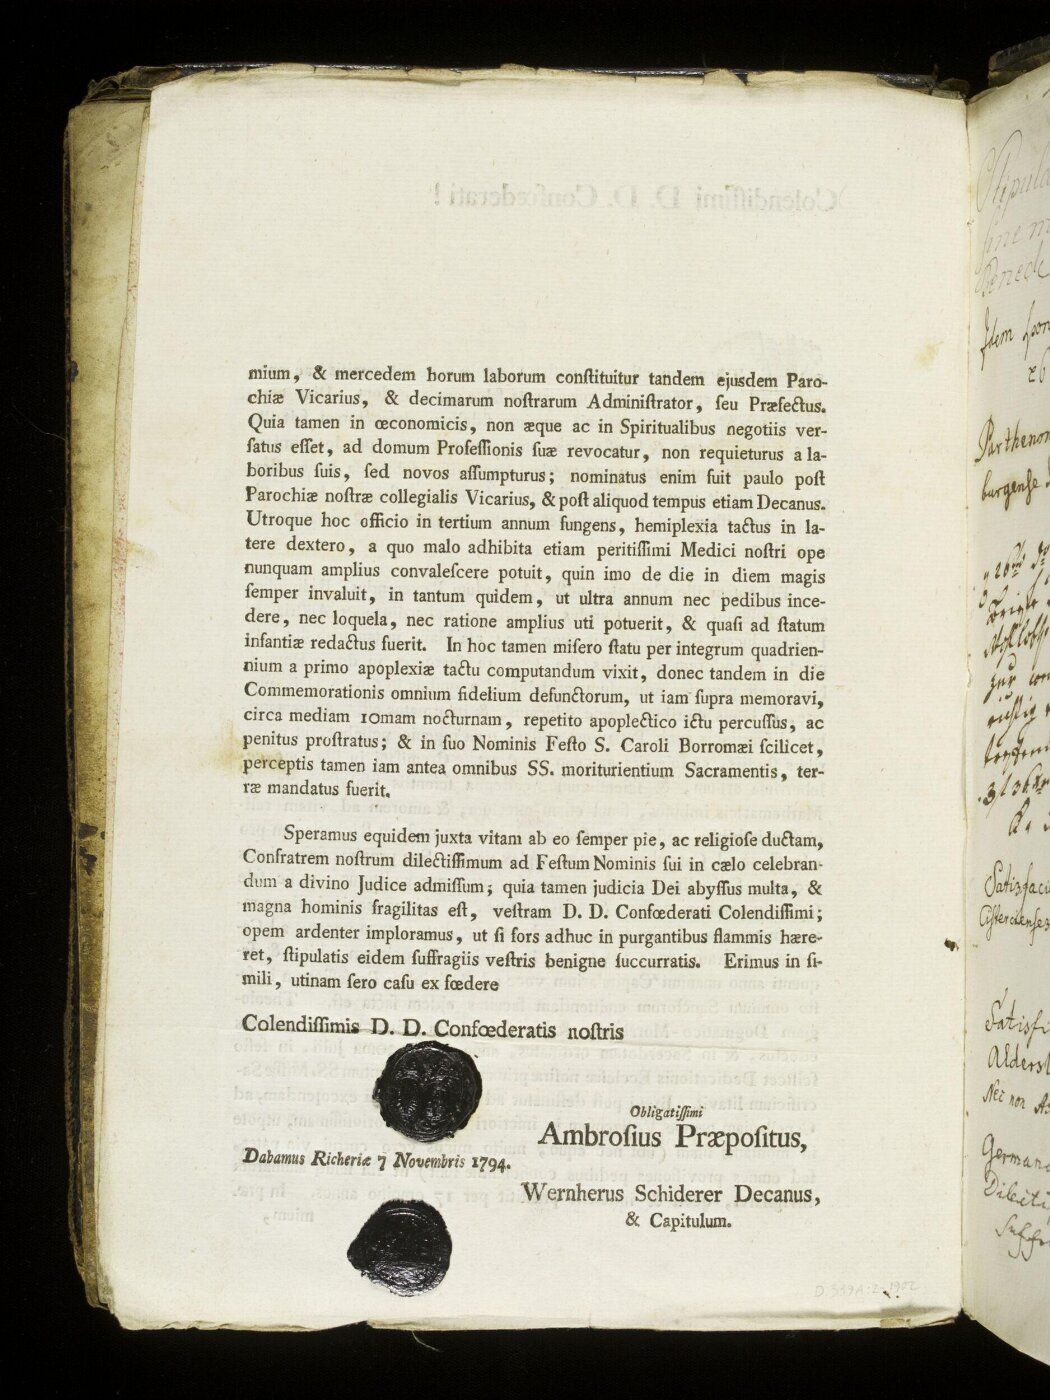 mium, & mercedem horum laborum conſtituitur tandem ejusdem Paro-
chiæ Vicarius, & decimarum noſtrarum Adminiſtrator, ſeu Præfectus.
Quia tamen in œconomicis, non æque ac in Spiritualibus negotiis ver-
ſatus eſſet, ad domum Profeſſionis ſuæ revocatur, non requieturus a la-
boribus ſuis, ſed novos aſſumpturus; nominatus enim fuit paulo poſt
Parochiæ noſtræ collegialis Vicarius, & poſt aliquod tempus etiam Decanus.
Utroque hoc officio in tertium annum fungens, hemiplexia tactus in la-
tere dextero, a quo malo adhibita etiam peritiſſimi Medici noſtri ope
nunquam amplius convaleſcere potuit, quin imo de die in diem magis
ſemper invaluit, in tantum quidem, ut ultra annum nec pedibus ince-
dere, nec loquela, nec ratione amplius uti potuerit, & quaſi ad ſtatum
infantiæ redactus fuerit. In hoc tamen miſero ſtatu per integrum quadrien-
nium a primo apoplexiæ tactu computandum vixit, donec tandem in die
Commemorationis omnium fidelium defunctorum, ut iam ſupra memoravi,
circa mediam 10mam nocturnam, repetito apoplectico ictu percuſſus, ac
penitus proſtratus; & in ſuo Nominis Feſto S. Caroli Borromæi ſcilicet,
perceptis tamen iam antea omnibus SS. moriturientium Sacramentis, ter-
ræ mandatus fuerit.
Speramus equidem juxta vitam ab eo ſemper pie, ac religioſe ductam,
Confratrem noſtrum dilectiſſimum ad Feſtum Nominis ſui in cælo celebran-
dum a divino Judice admiſſum; quia tamen judicia Dei abyſſus multa, &
magna hominis fragilitas eſt, veſtram D. D. Confœderati Colendiſſimi;
opem ardenter imploramus, ut ſi fors adhuc in purgantibus flammis hære-
ret, ſtipulatis eidem ſuffragiis veſtris benigne ſuccurratis. Erimus in ſi-
mili, utinam ſero caſu ex fœdere
Colendiſſimis D. D. Confœderatis noſtris
Obligatiſſimi
Ambroſius Præpoſitus,
Dabamus Richeriæ 7 Novembris 1794.
Wernherus Schiderer Decanus,
& Capitulum.
Idem
Parthenon
burgenſe
Satisfi
Nec non
Germano
Dilecti